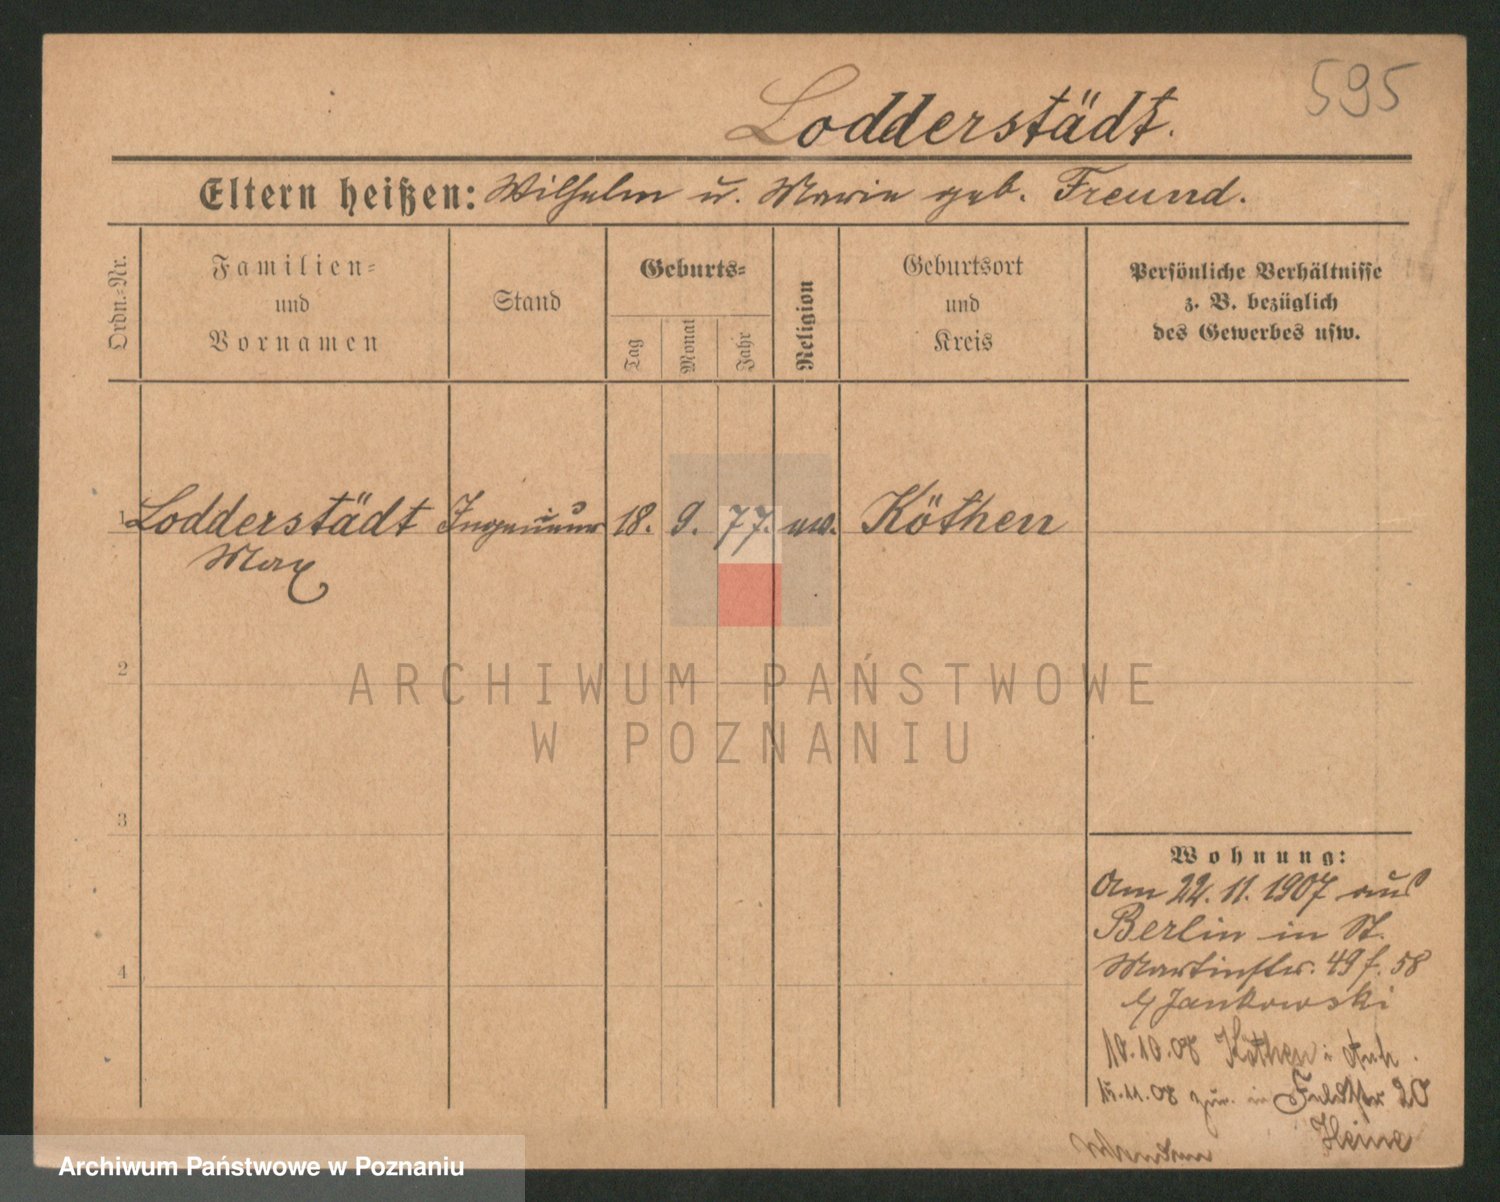 595
Lodderstädt.
Eltern heißen: Wilhelm u. Marie geb. Freund.
Ordn.-Nr.
Familien-
und
Vornamen
Stand
Geburts-
Tag
Monat
Jahr
Religion
Geburtsort
und
Kreis
Persönliche Verhältnisse
z. B. bezüglich
des Gewerbes usw.
1 Lodderstädt Ingenieur 18. 9. 77. ev. Köthen
Max
2
ARCHIWUM PAŃSTWOWE
W POZNANIU
3
Wohnung:
Am 22. 11. 1907 aus
Berlin in St.
Martinstr. 49 f. 58
b/ Jankowski
4
10.10.08 Köthen i Anh.
15.11.08 zur. in Feldstr 20
Heine
Archiwum Państwowe w Poznaniu